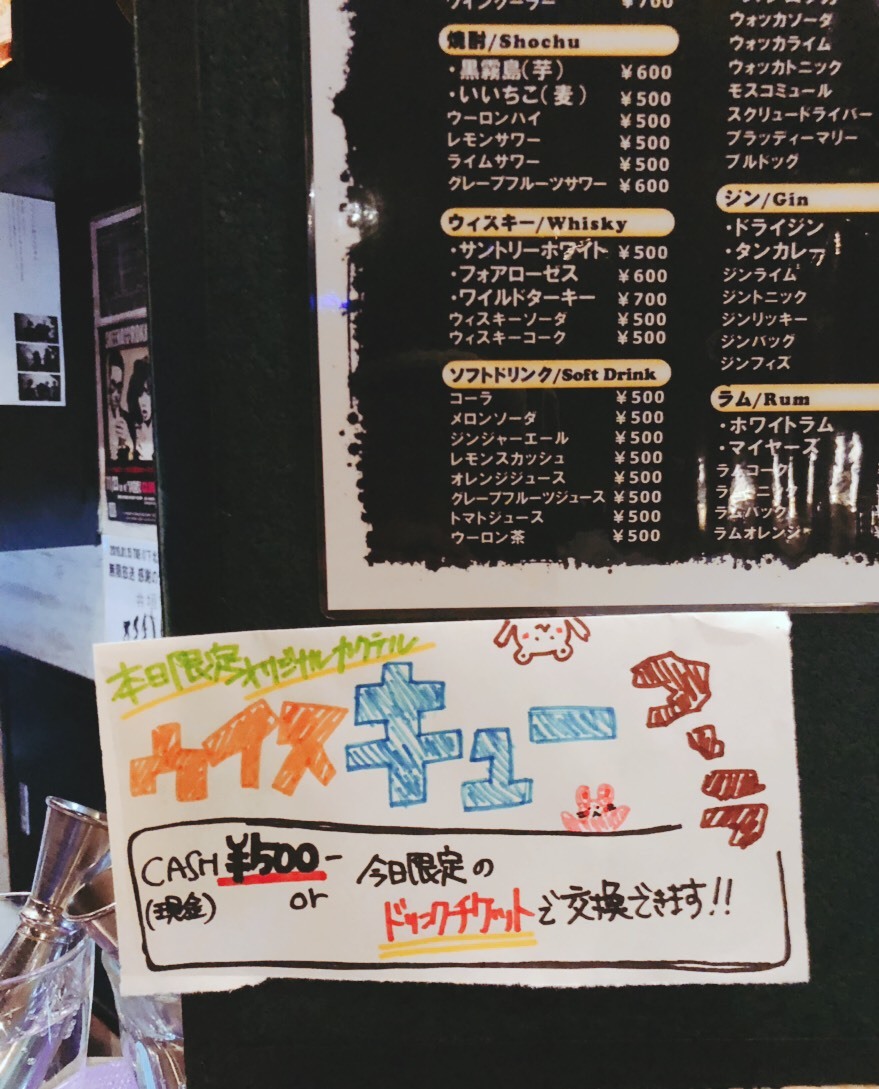 ワインクーラー ¥700
焼酎/Shochu
・黒霧島(芋) ¥600
・いいちこ(麦) ¥500
ウーロンハイ ¥500
レモンサワー ¥500
ライムサワー ¥500
グレープフルーツサワー ¥600
ウィスキー/Whisky
・サントリーホワイト ¥500
・フォアローゼス ¥600
・ワイルドターキー ¥700
ウィスキーソーダ ¥500
ウィスキーコーク ¥500
ソフトドリンク/Soft Drink
コーラ ¥500
メロンソーダ ¥500
ジンジャーエール ¥500
レモンスカッシュ ¥500
オレンジジュース ¥500
グレープフルーツジュース ¥500
トマトジュース ¥500
ウーロン茶 ¥500
ウォッカソーダ
ウォッカライム
ウォッカトニック
モスコミュール
スクリュードライバー
ブラッディーマリー
ブルドッグ
ジン/Gin
・ドライジン
・タンカレー
ジンライム
ジントニック
ジンリッキー
ジンバッグ
ジンフィズ
ラム/Rum
・ホワイトラム
・マイヤーズ
ラムコーク
ラムバック
ラムオレンジ
本日限定オリジナルカクテル
ケイスキュー
CASH ¥500-
(現金) or
今日限定の
ドリンクチケットで交換できます!!